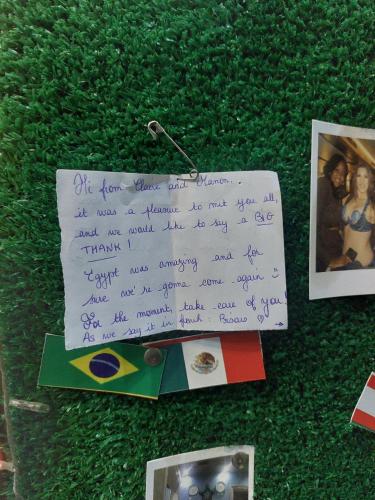 Hi from Claire and Manon..
it was a pleasure to mit you all,
and we would like to say a BIG
THANK!
Egypt was amazing and for
sure we're gonna come again
For the moment, take care of you!
As we say it in french: Bisous ♡ →